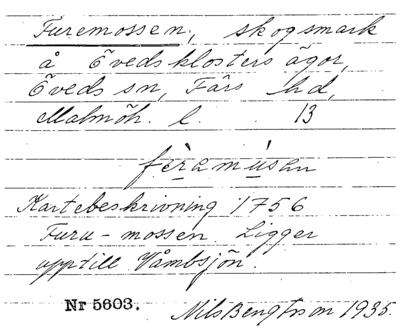 Furemossen, skogsmark
å Övedsklosters ägor,
Öveds sn, Färs hd,
Malmöh. l. 13
fèramùsen
Kartebeskrivning 1756
Furu-mossen. Ligger
upptill Våmbsjön.
Nr 5603. Nils Bengtsson 1935.